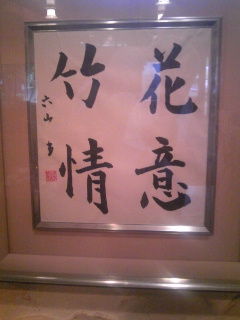 花意
竹情
六山 書